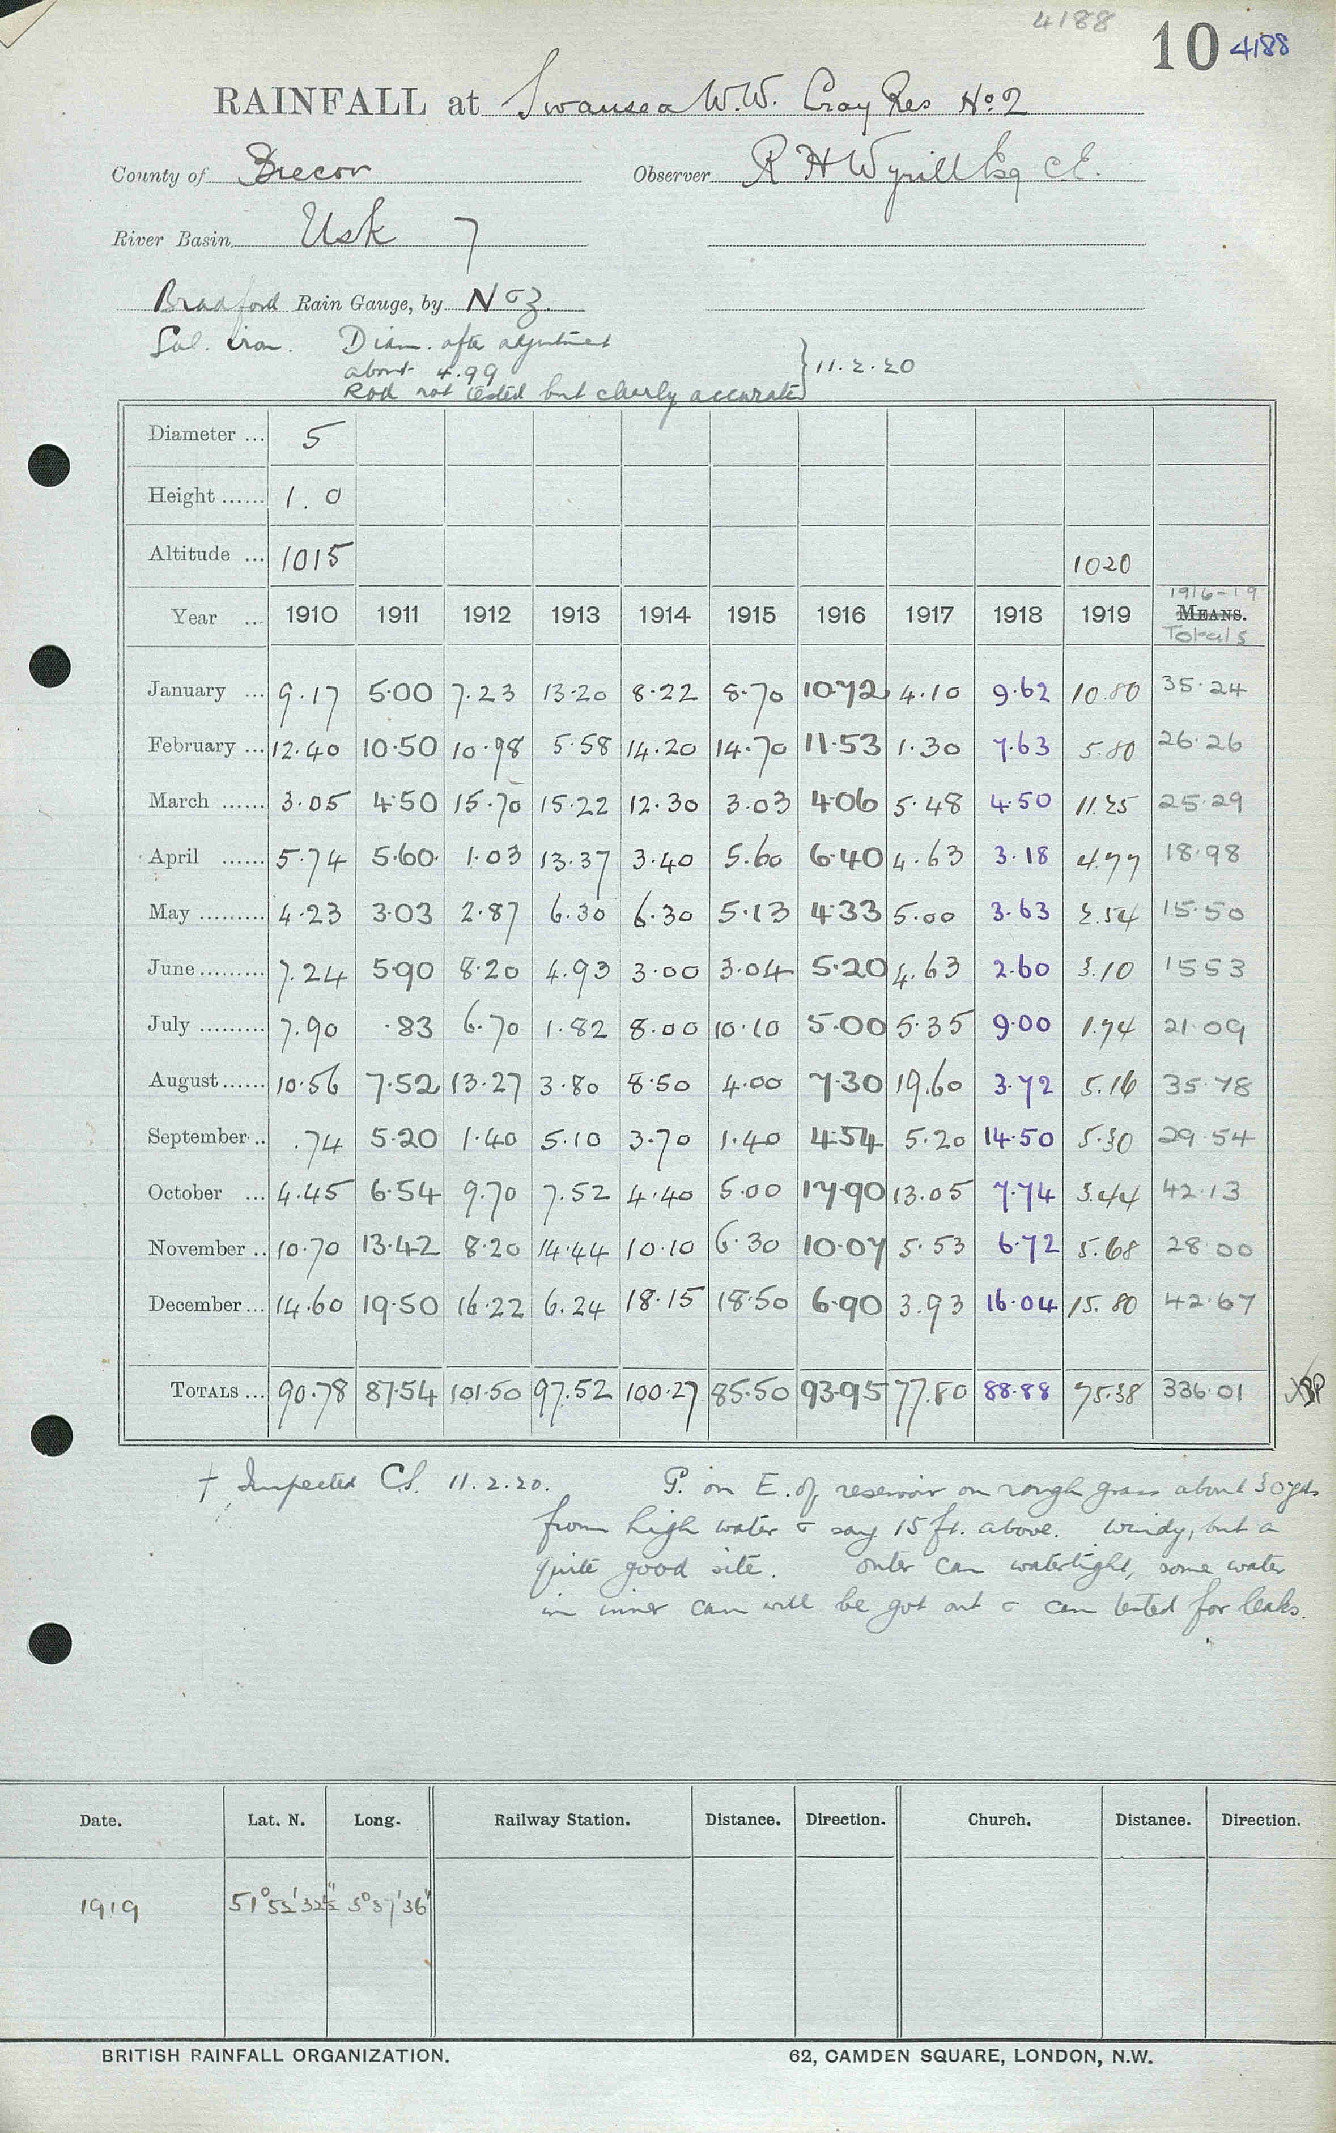 4188
10 4188
RAINFALL at Swansea W.W. Cray Res No. 2
County of Brecon Observer R H Wyrill Esq C.E.
River Basin Usk 7
Bradford Rain Gauge, by N & Z.
Gal. iron. Diam. after adjustment
about 4.99 } 11.2.20
Rod not tested but clearly accurate
Diameter ... 5
Height ...... 1.0
Altitude ... 1015 1020
1916-19
Year .. 1910 1911 1912 1913 1914 1915 1916 1917 1918 1919 MEANS.
Totals
January ... 9.17 5.00 7.23 13.20 8.22 8.70 10.72 4.10 9.62 10.80 35.24
February ... 12.40 10.50 10.98 5.58 14.20 14.70 11.53 1.30 7.63 5.80 26.26
March ...... 3.05 4.50 15.70 15.22 12.30 3.03 4.06 5.48 4.50 11.25 25.29
April ...... 5.74 5.60 1.03 13.37 3.40 5.60 6.40 4.63 3.18 4.77 18.98
May ......... 4.23 3.03 2.87 6.30 6.30 5.13 4.33 5.00 3.63 2.54 15.50
June ......... 7.24 5.90 8.20 4.93 3.00 3.04 5.20 4.63 2.60 3.10 15.53
July ......... 7.90 .83 6.70 1.82 8.00 10.10 5.00 5.35 9.00 1.74 21.09
August ...... 10.56 7.52 13.27 3.80 8.50 4.00 7.30 19.60 3.72 5.16 35.78
September .. .74 5.20 1.40 5.10 3.70 1.40 4.54 5.20 14.50 5.30 29.54
October ... 4.45 6.54 9.70 7.52 4.40 5.00 17.90 13.05 7.74 3.44 42.13
November .. 10.70 13.42 8.20 14.44 10.10 6.30 10.07 5.53 6.72 5.68 28.00
December ... 14.60 19.50 16.22 6.24 18.15 18.50 6.90 3.93 16.04 15.80 42.67
TOTALS ... 90.78 87.54 101.50 97.52 100.27 85.50 93.95 77.80 88.88 75.38 336.01
† Inspected C.S. 11.2.20. G. on E. of reservoir on rough grass about 30 yds
from high water & say 15 ft. above. Windy, but a
quite good site. Outer can watertight, some water
in inner can will be got out & can tested for leaks.
Date. Lat. N. Long. Railway Station. Distance. Direction. Church. Distance. Direction.
1919 51° 52' 32½" 3° 37' 36"
BRITISH RAINFALL ORGANIZATION. 62, CAMDEN SQUARE, LONDON, N.W.